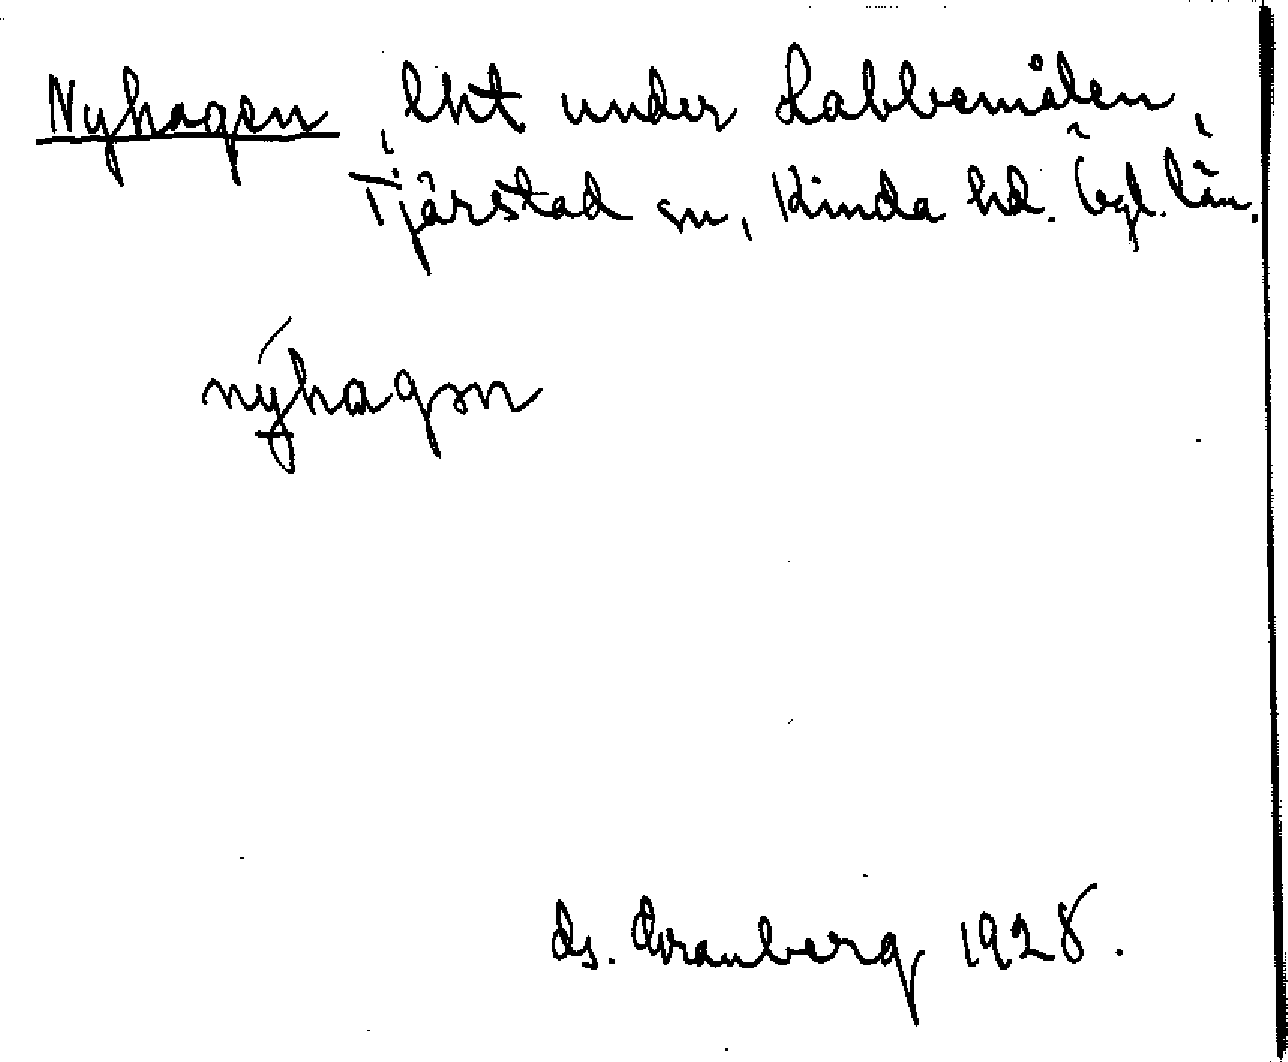 Nyhagen, lht under Labbemålen,
Tjärstad sn, Kinda hd. Ögl. län.
nýhagən
Ds. Granberg 1928.